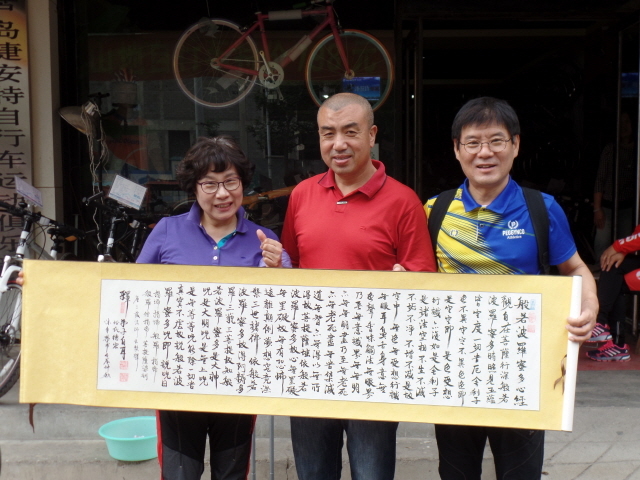 岛捷安特自行车运动俱乐
般若波羅蜜多心經
觀自在菩薩行深般若
波羅蜜多時照見五蘊
皆空度一切苦厄舍利子
色不異空空不異色色即
是空空即是色受想
行識亦復如是舍利子
是諸法空相不生不滅
不垢不淨不增不減是故
空中無色無受想行識
無眼耳鼻舌身意無
色聲香味觸法無眼界
乃至無意識界無無明
亦無無明盡乃至無老死
亦無老死盡無苦集滅
道無智亦無得以無所
得故菩提薩埵依般若
波羅蜜多故心無罣礙
無罣礙故無有恐怖
遠離顛倒夢想究竟涅
槃三世諸佛依般若
波羅蜜多故得阿耨多
羅三藐三菩提故知般
若波羅蜜多是大神
咒是大明咒是無上咒
是無等等咒能除一切苦
真實不虛故說般若波
羅蜜多咒即說咒曰